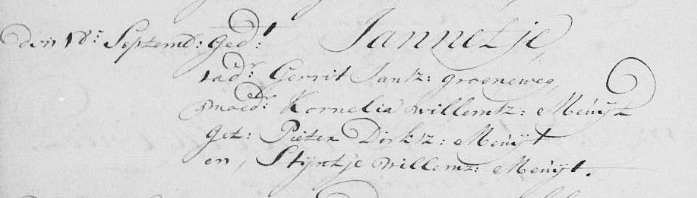 den 18: Septemb: Ged:t Jannetje,
vad:r Gerrit Jantz: groeneweg,
moed:r Kornelia willemtz: Meüÿt
get: Pieter Dirktz: Meüÿt
en, Stÿntje willemtz: Meüÿt.